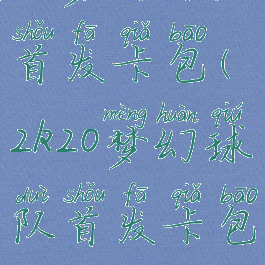 shǒu fā qiǎ bāo
首发卡包(
mèng huàn qiú
2k20梦幻球
duì shǒu fā qiǎ bāo
队首发卡包